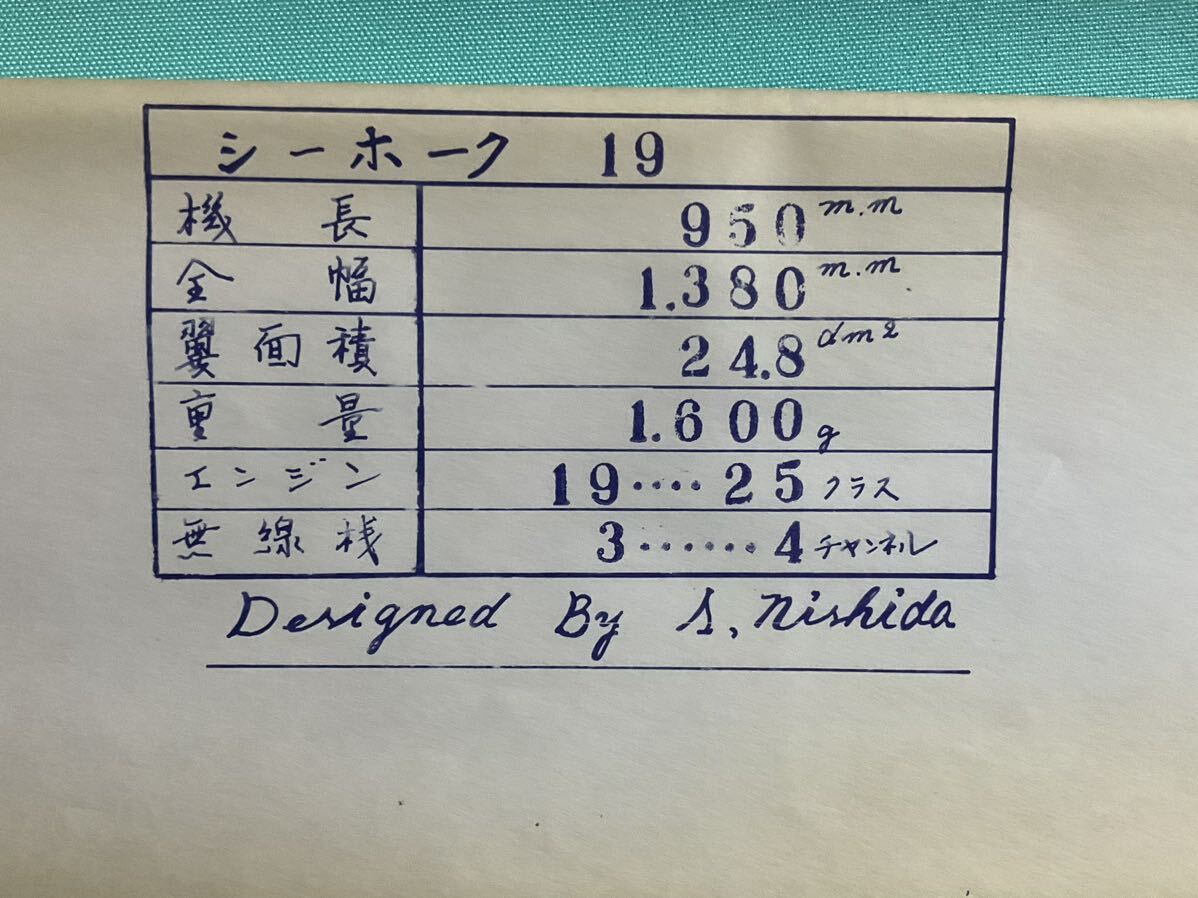 シーホーク 19
機長 950 m.m
全幅 1.380 m.m
翼面積 24.8 dm2
重量 1.600 g
エンジン 19････25 クラス
無線桟 3･･････4 チャンネル
Designed By S. Nishida